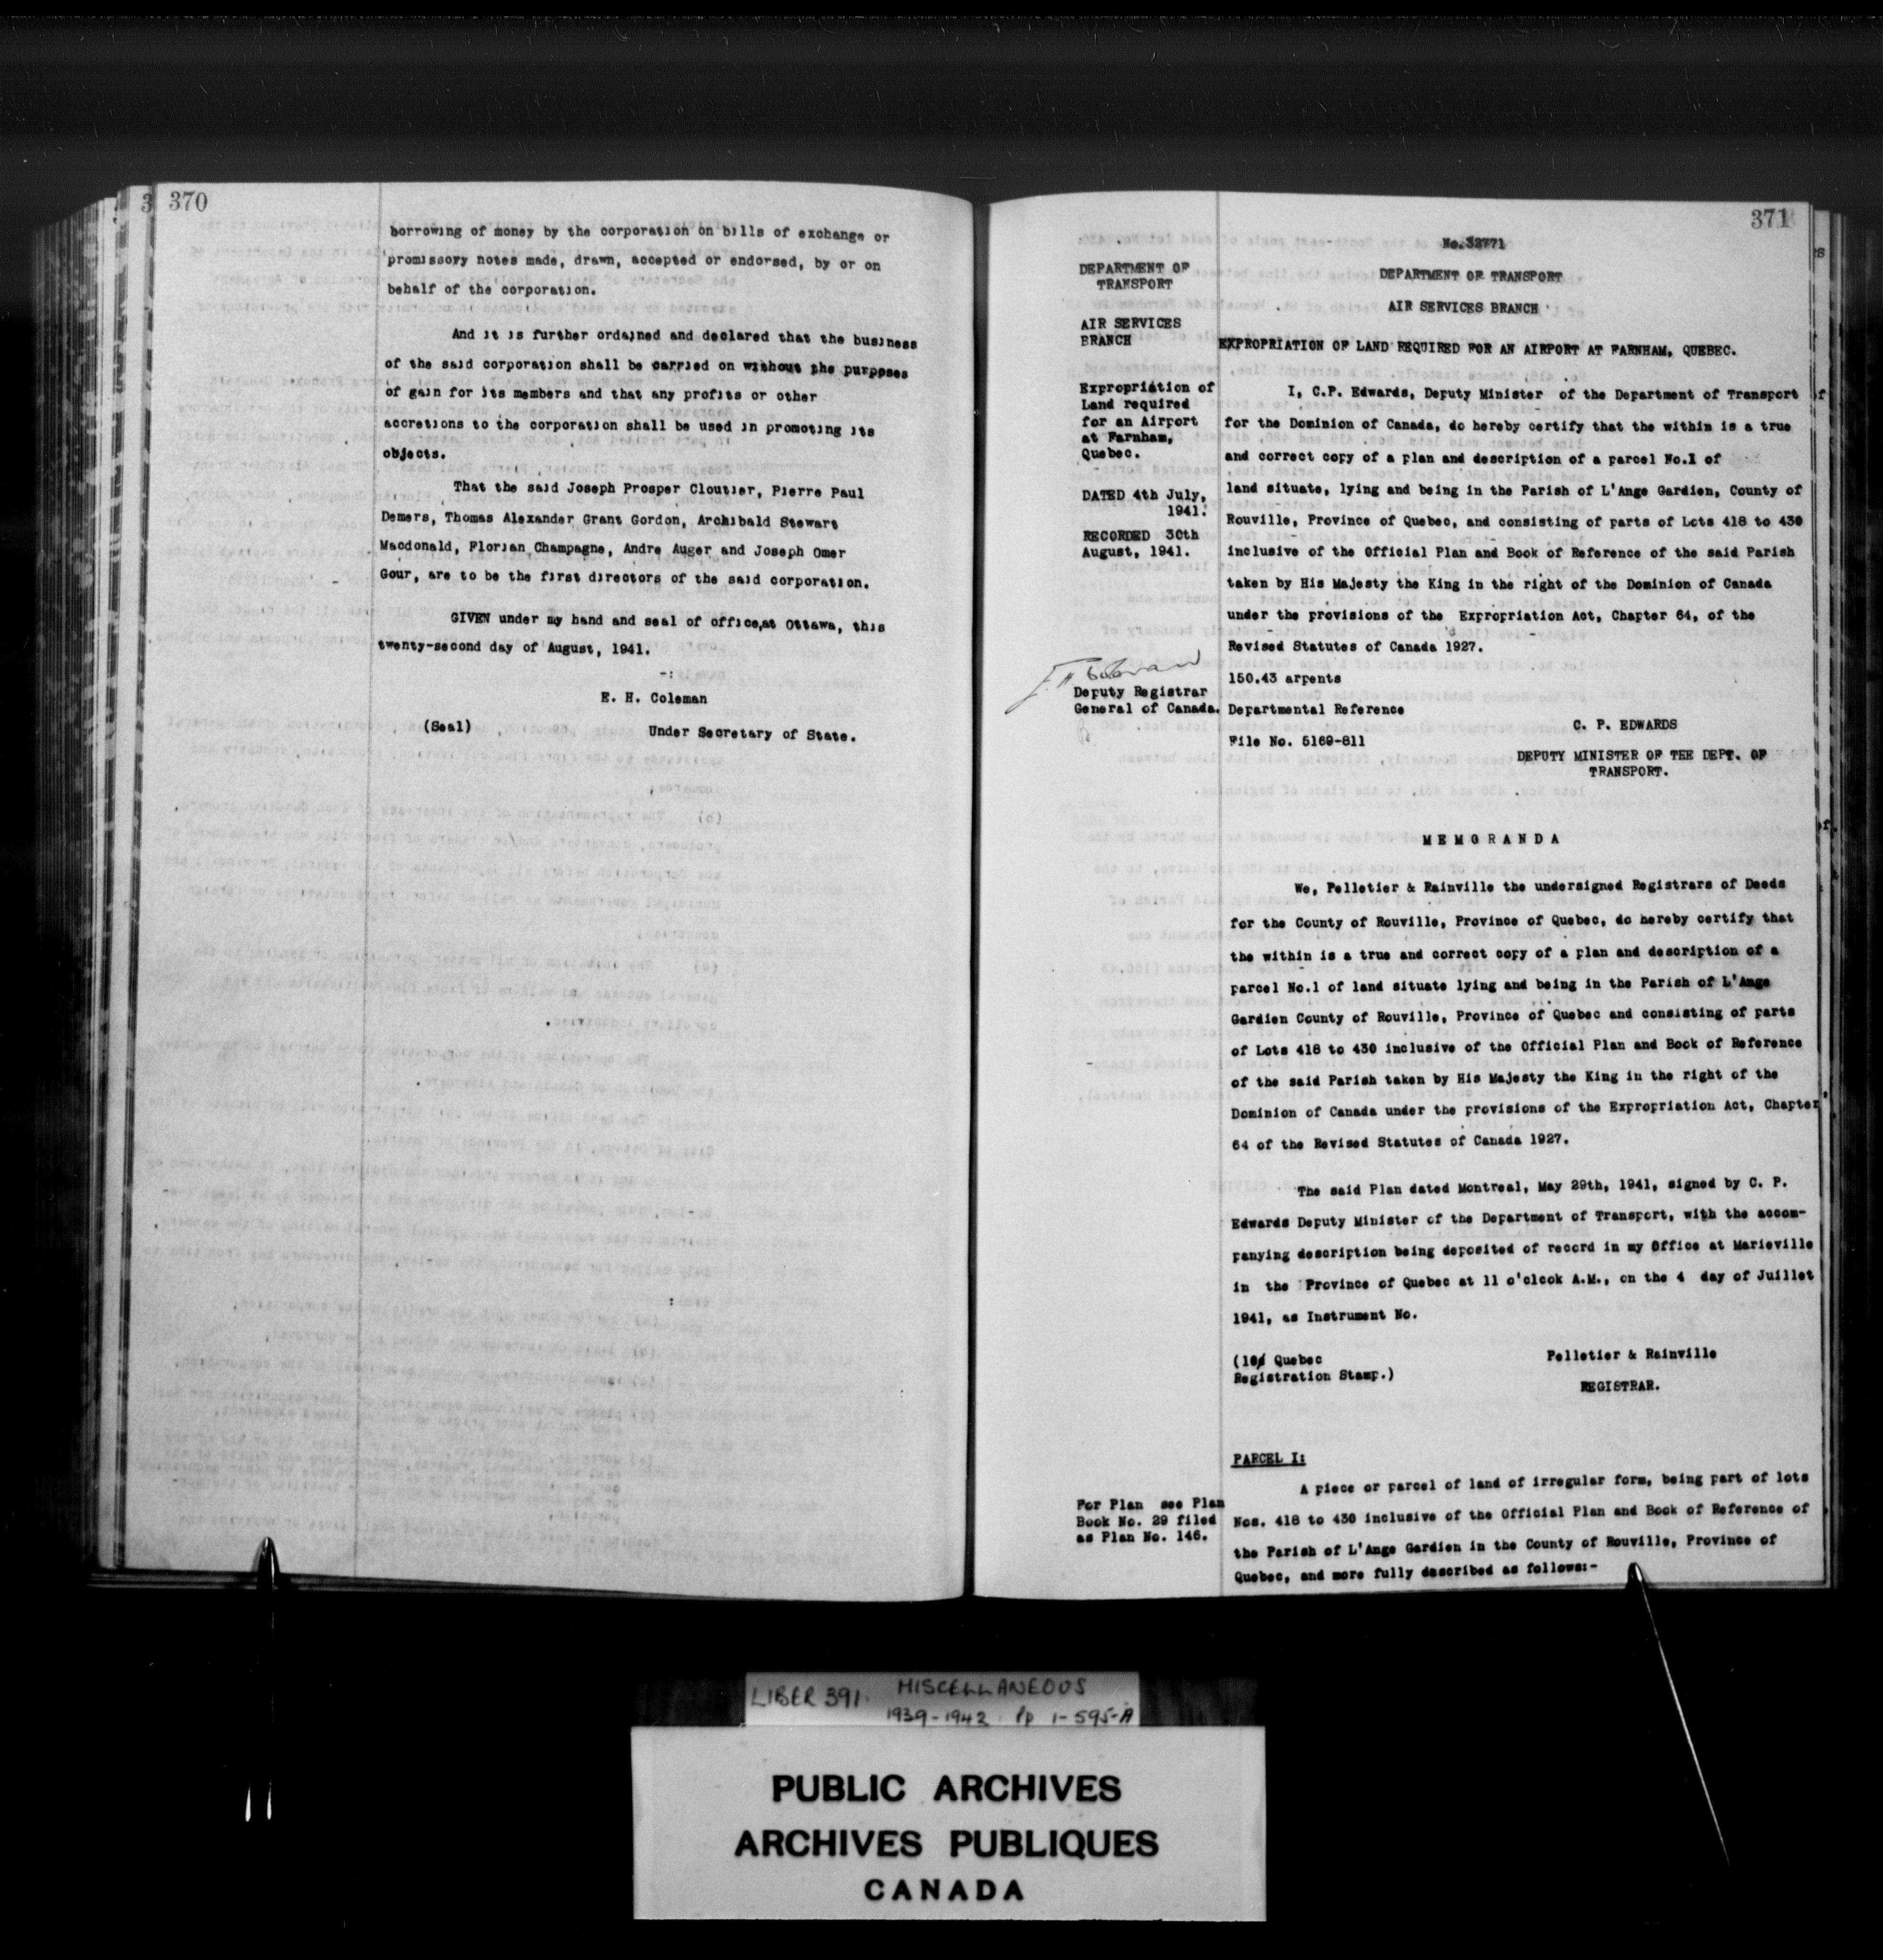 370
borrowing of money by the corporation on bills of exchange or
promissory notes made, drawn, accepted or endorsed, by or on
behalf of the corporation.
And it is further ordained and declared that the business
of the said corporation shall be carried on without the purposes
of gain for its members and that any profits or other
accretions to the corporation shall be used in promoting its
objects.
That the said Joseph Prosper Cloutier, Pierre Paul
Demers, Thomas Alexander Grant Gordon, Archibald Stewart
Macdonald, Florian Champagne, Andre Auger and Joseph Omer
Gour, are to be the first directors of the said corporation.
GIVEN under my hand and seal of office,at Ottawa, this
twenty-second day of August, 1941.
-:
E. H. Coleman
(Seal) Under Secretary of State.
371
No.32771
DEPARTMENT OF
TRANSPORT
AIR SERVICES
BRANCH
Expropriation of
Land required
for an Airport
at Farnham,
Quebec.
DATED 4th July,
1941.
RECORDED 30th
August, 1941.
Deputy Registrar
General of Canada.
DEPARTMENT OF TRANSPORT
AIR SERVICES BRANCH
EXPROPRIATION OF LAND REQUIRED FOR AN AIRPORT AT FARNHAM, QUEBEC.
I, C.P. Edwards, Deputy Minister of the Department of Transport
for the Dominion of Canada, do hereby certify that the within is a true
and correct copy of a plan and description of a parcel No.1 of
land situate, lying and being in the Parish of L'Ange Gardien, County of
Rouville, Province of Quebec, and consisting of parts of Lots 418 to 430
inclusive of the Official Plan and Book of Reference of the said Parish
taken by His Majesty the King in the right of the Dominion of Canada
under the provisions of the Expropriation Act, Chapter 64, of the
Revised Statutes of Canada 1927.
150.43 arpents
Departmental Reference
File No. 5169-811
C. P. EDWARDS
DEPUTY MINISTER OF THE DEPT. OF
TRANSPORT.
MEMORANDA
We, Pelletier & Rainville the undersigned Registrars of Deeds
for the County of Rouville, Province of Quebec, do hereby certify that
the within is a true and correct copy of a plan and description of a
parcel No.1 of land situate lying and being in the Parish of L'Ange
Gardien County of Rouville, Province of Quebec and consisting of parts
of Lots 418 to 430 inclusive of the Official Plan and Book of Reference
of the said Parish taken by His Majesty the King in the right of the
Dominion of Canada under the provisions of the Expropriation Act, Chapter
64 of the Revised Statutes of Canada 1927.
The said Plan dated Montreal, May 29th, 1941, signed by C. P.
Edwards Deputy Minister of the Department of Transport, with the accom-
panying description being deposited of record in my Office at Marieville
in the Province of Quebec at 11 o'clcok A.M., on the 4 day of Juillet
1941, as Instrument No.
(10¢ Quebec
Registration Stamp.)
Pelletier & Rainville
REGISTRAR.
PARCEL I:
For Plan see Plan
Book No. 29 filed
as Plan No. 146.
A piece or parcel of land of irregular form, being part of lots
Nos. 418 to 430 inclusive of the Official Plan and Book of Reference of
the Parish of L'Ange Gardien in the County of Rouville, Province of
Quebec, and more fully described as follows:-
LIBER 391. MISCELLANEOUS
1939-1942. Pp 1-595-A
PUBLIC ARCHIVES
ARCHIVES PUBLIQUES
CANADA